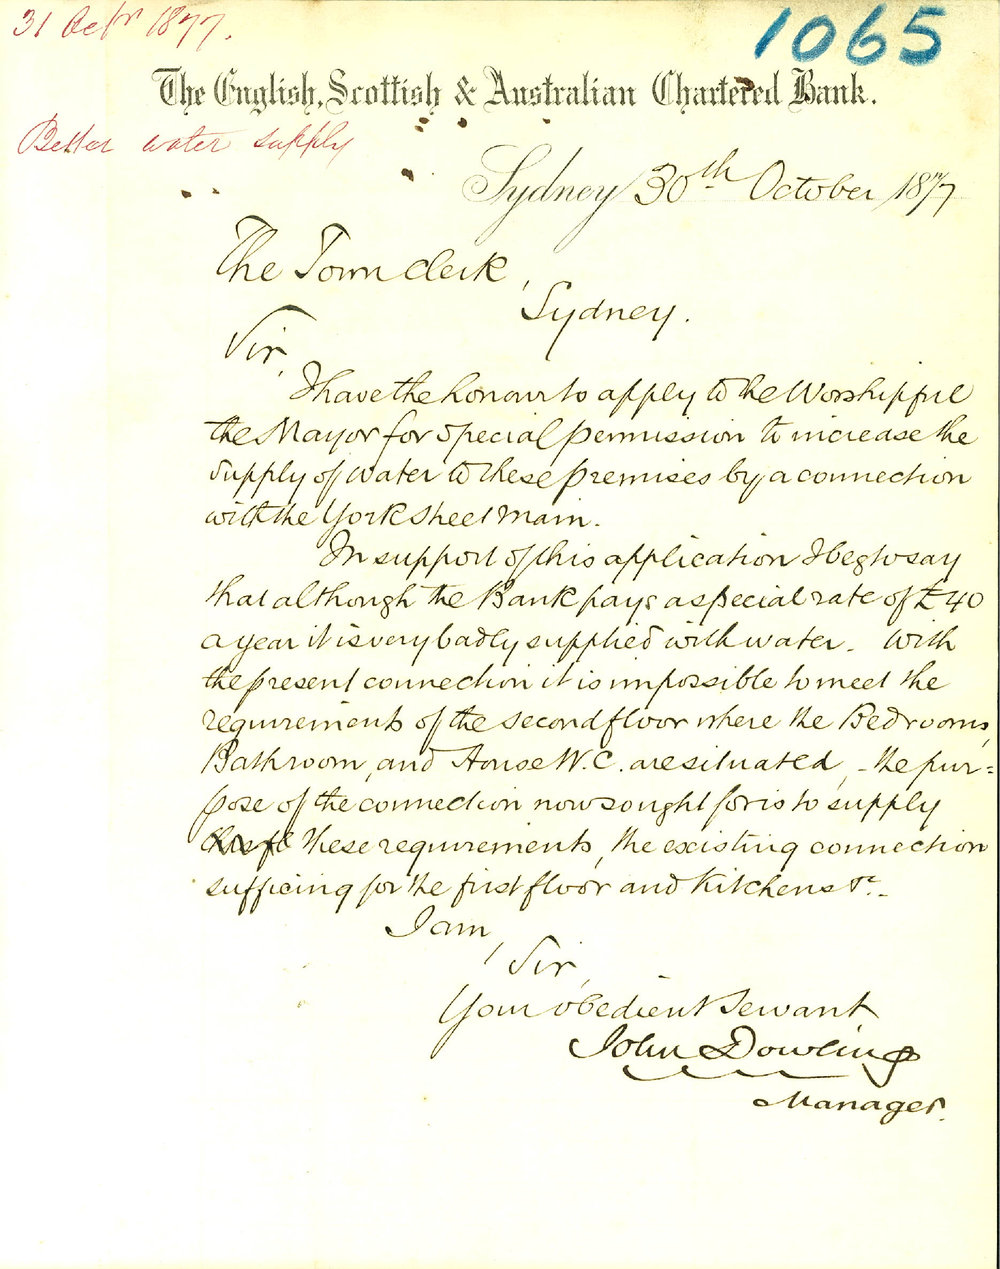 31 Octr 1877.
1065
The English, Scottish & Australian Chartered Bank.
Better water supply
Sydney 30th October 1877
The Town Clerk,
Sydney.
Sir,
I have the honour to apply to the Worshipful
the Mayor for special permission to increase the
supply of water to these premises by a connection
with the York Street Main.
In support of this application I beg to say
that although the Bank pays a special rate of £40
a year it is very badly supplied with water. With
the present connection it is impossible to meet the
requirements of the second floor where the Bedrooms,
Bathroom, and House W.C. are situated, - the pur=
pose of the connection now sought for is to supply
these requirements, the existing connection
sufficing for the first floor and Kitchens &c.
I am,
Sir,
Your obedient Servant
John Dowling
Manager.